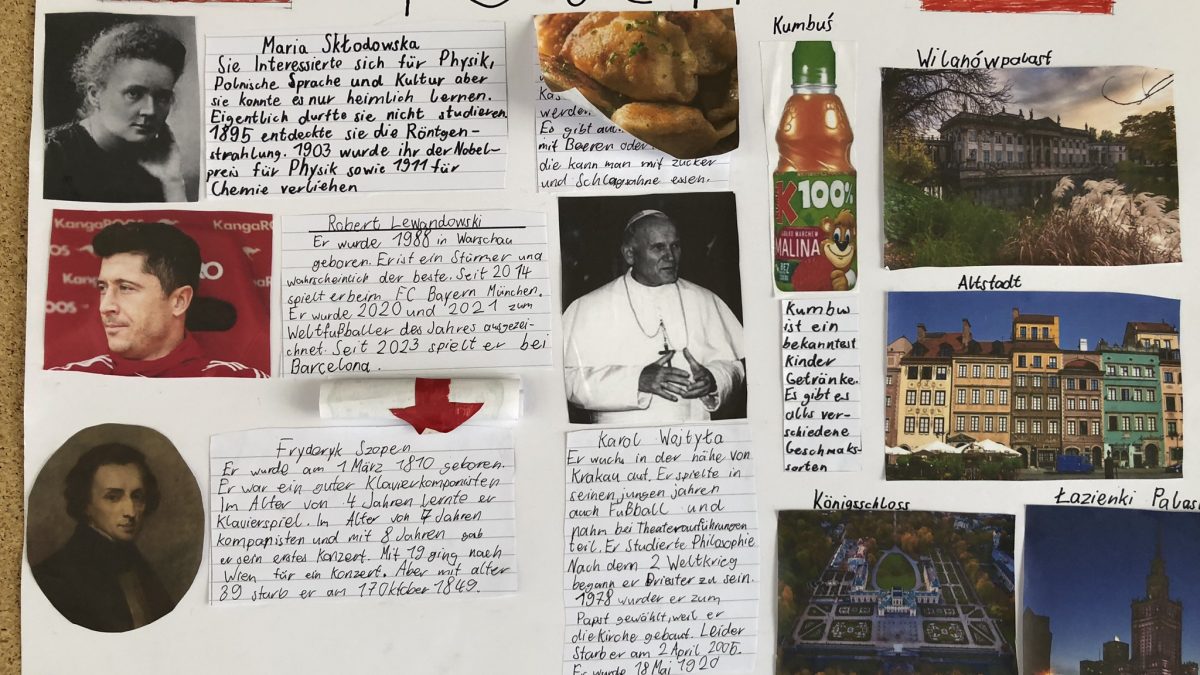 Maria Skłodowska
Sie Interessierte sich für Physik,
Polnische Sprache und Kultur aber
sie konnte es nur heimlich lernen.
Eigentlich durfte sie nicht studieren
1895 entdeckte sie die Röntgen-
strahlung. 1903 wurde ihr der Nobel-
preis für Physik sowie 1911 für
Chemie verliehen
werden.
Es gibt au
mit Beeren oder
die kann man mit zucker
und Schlagsahne essen.
Kumbuś
K 100%
MARCHEW
MALINA
BEZ
Kumbuś
ist ein
bekanntest
Kinder
Getränke.
Es gibt es
alls ver-
schiedene
Geschmaks-
sorten
Wilanówpalast
Altstadt
Königsschloss
Łazienki Palas
KangaROOS
KangaR
OOS
RO
OOS
Robert Lewandowski
Er wurde 1988 in Warschau
geboren. Er ist ein Stürmer und
wahrscheinlich der beste. Seit 2014
spielt er beim FC Bayern München.
Er wurde 2020 und 2021 zum
Weltfußballer des Jahres ausgezei-
chnet. Seit 2023 spielt er bei
Barcelona.
Fryderyk Szopen
Er wurde am 1 März 1810 geboren.
Er war ein guter Klavierkomponisten
Im Alter von 4 Jahren Lernte er
Klavierspiel. Im Alter von 7 Jahren
kompanisten und mit 8 Jahren gab
er sein erstes Konzert. Mit 19 ging nach
Wien für ein Konzert. Aber mit alter
39 starb er am 17 Oktober 1849.
Karol Wojtyła
Er wuchs in der nähe von
Krakau auf. Er spielte in
seinen jungen jahren
auch Fußball und
nahm bei Theateraufführungen
teil. Er Studierte Philosophie
Nach dem 2 Weltkrieg
begann er Priester zu sein.
1978 wurder er zum
Papst gewählt, weil er
die Kirche gebaut. Leider
Starb er am 2 April 2005.
Es wurde 18 Mai 1920